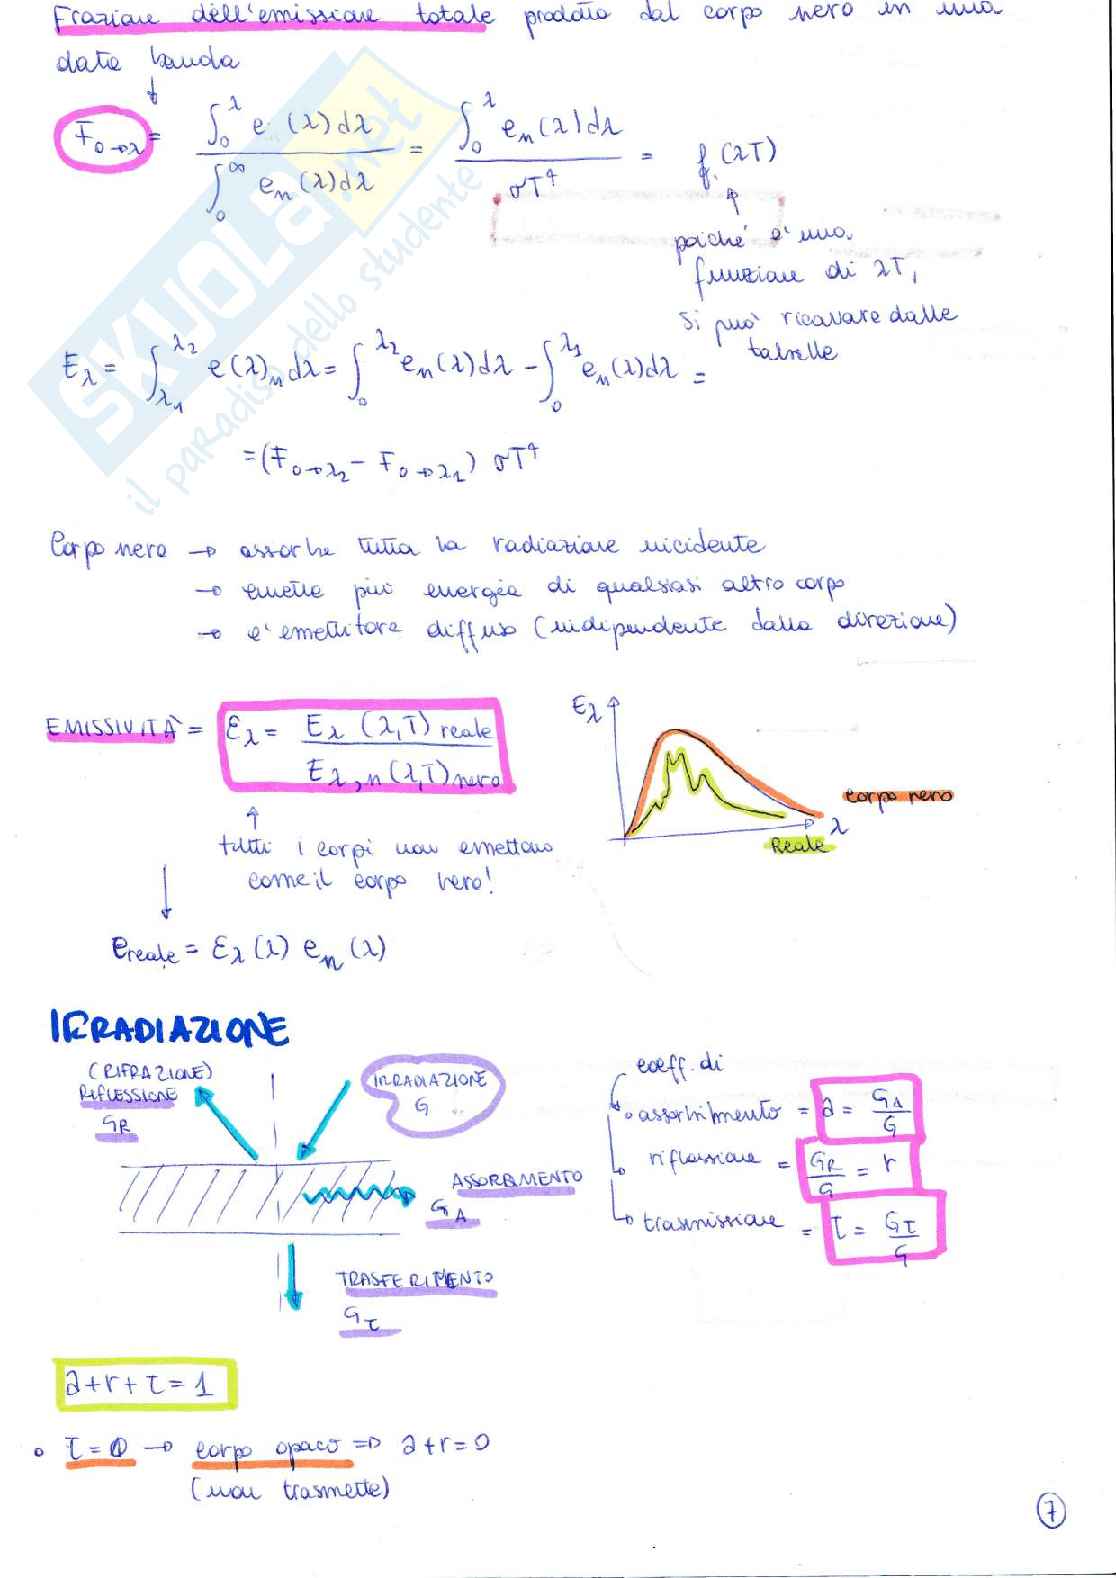 Frazione dell'emissione totale prodotta dal corpo nero in una
data banda
F0→λ = ∫0^λ e (λ)dλ / ∫0^∞ en(λ)dλ = ∫0^λ en(λ)dλ / σT⁴ = f(λT)
poiché è una
funzione di λT,
si può ricavare dalle
tabelle
Eλ = ∫λ1^λ2 e(λ)n dλ = ∫0^λ2 en(λ)dλ - ∫0^λ1 en(λ)dλ =
= (F0→λ2 - F0→λ1) σT⁴
Corpo nero → assorbe tutta la radiazione incidente
→ emette più energia di qualsiasi altro corpo
→ è emettitore diffuso (indipendente dalla direzione)
EMISSIVITÀ = ελ = Eλ (λ,T) reale / Eλ,n (λ,T) nero
Eλ
corpo nero
λ
Reale
tutti i corpi non emettono
come il corpo nero!
ereale = ελ(λ) en(λ)
IRRADIAZIONE
(RIFRAZIONE)
RIFLESSIONE
GR
IRRADIAZIONE
G
ASSORBIMENTO
GA
TRASFERIMENTO
Gτ
coeff. di
assorbimento = a = GA/G
riflessione = GR/G = r
trasmissione = τ = Gτ/G
a+r+τ=1
• τ=0 → corpo opaco ⇒ a+r=0
(non trasmette)
7
SKUOLA.net
il paradiso dello studente